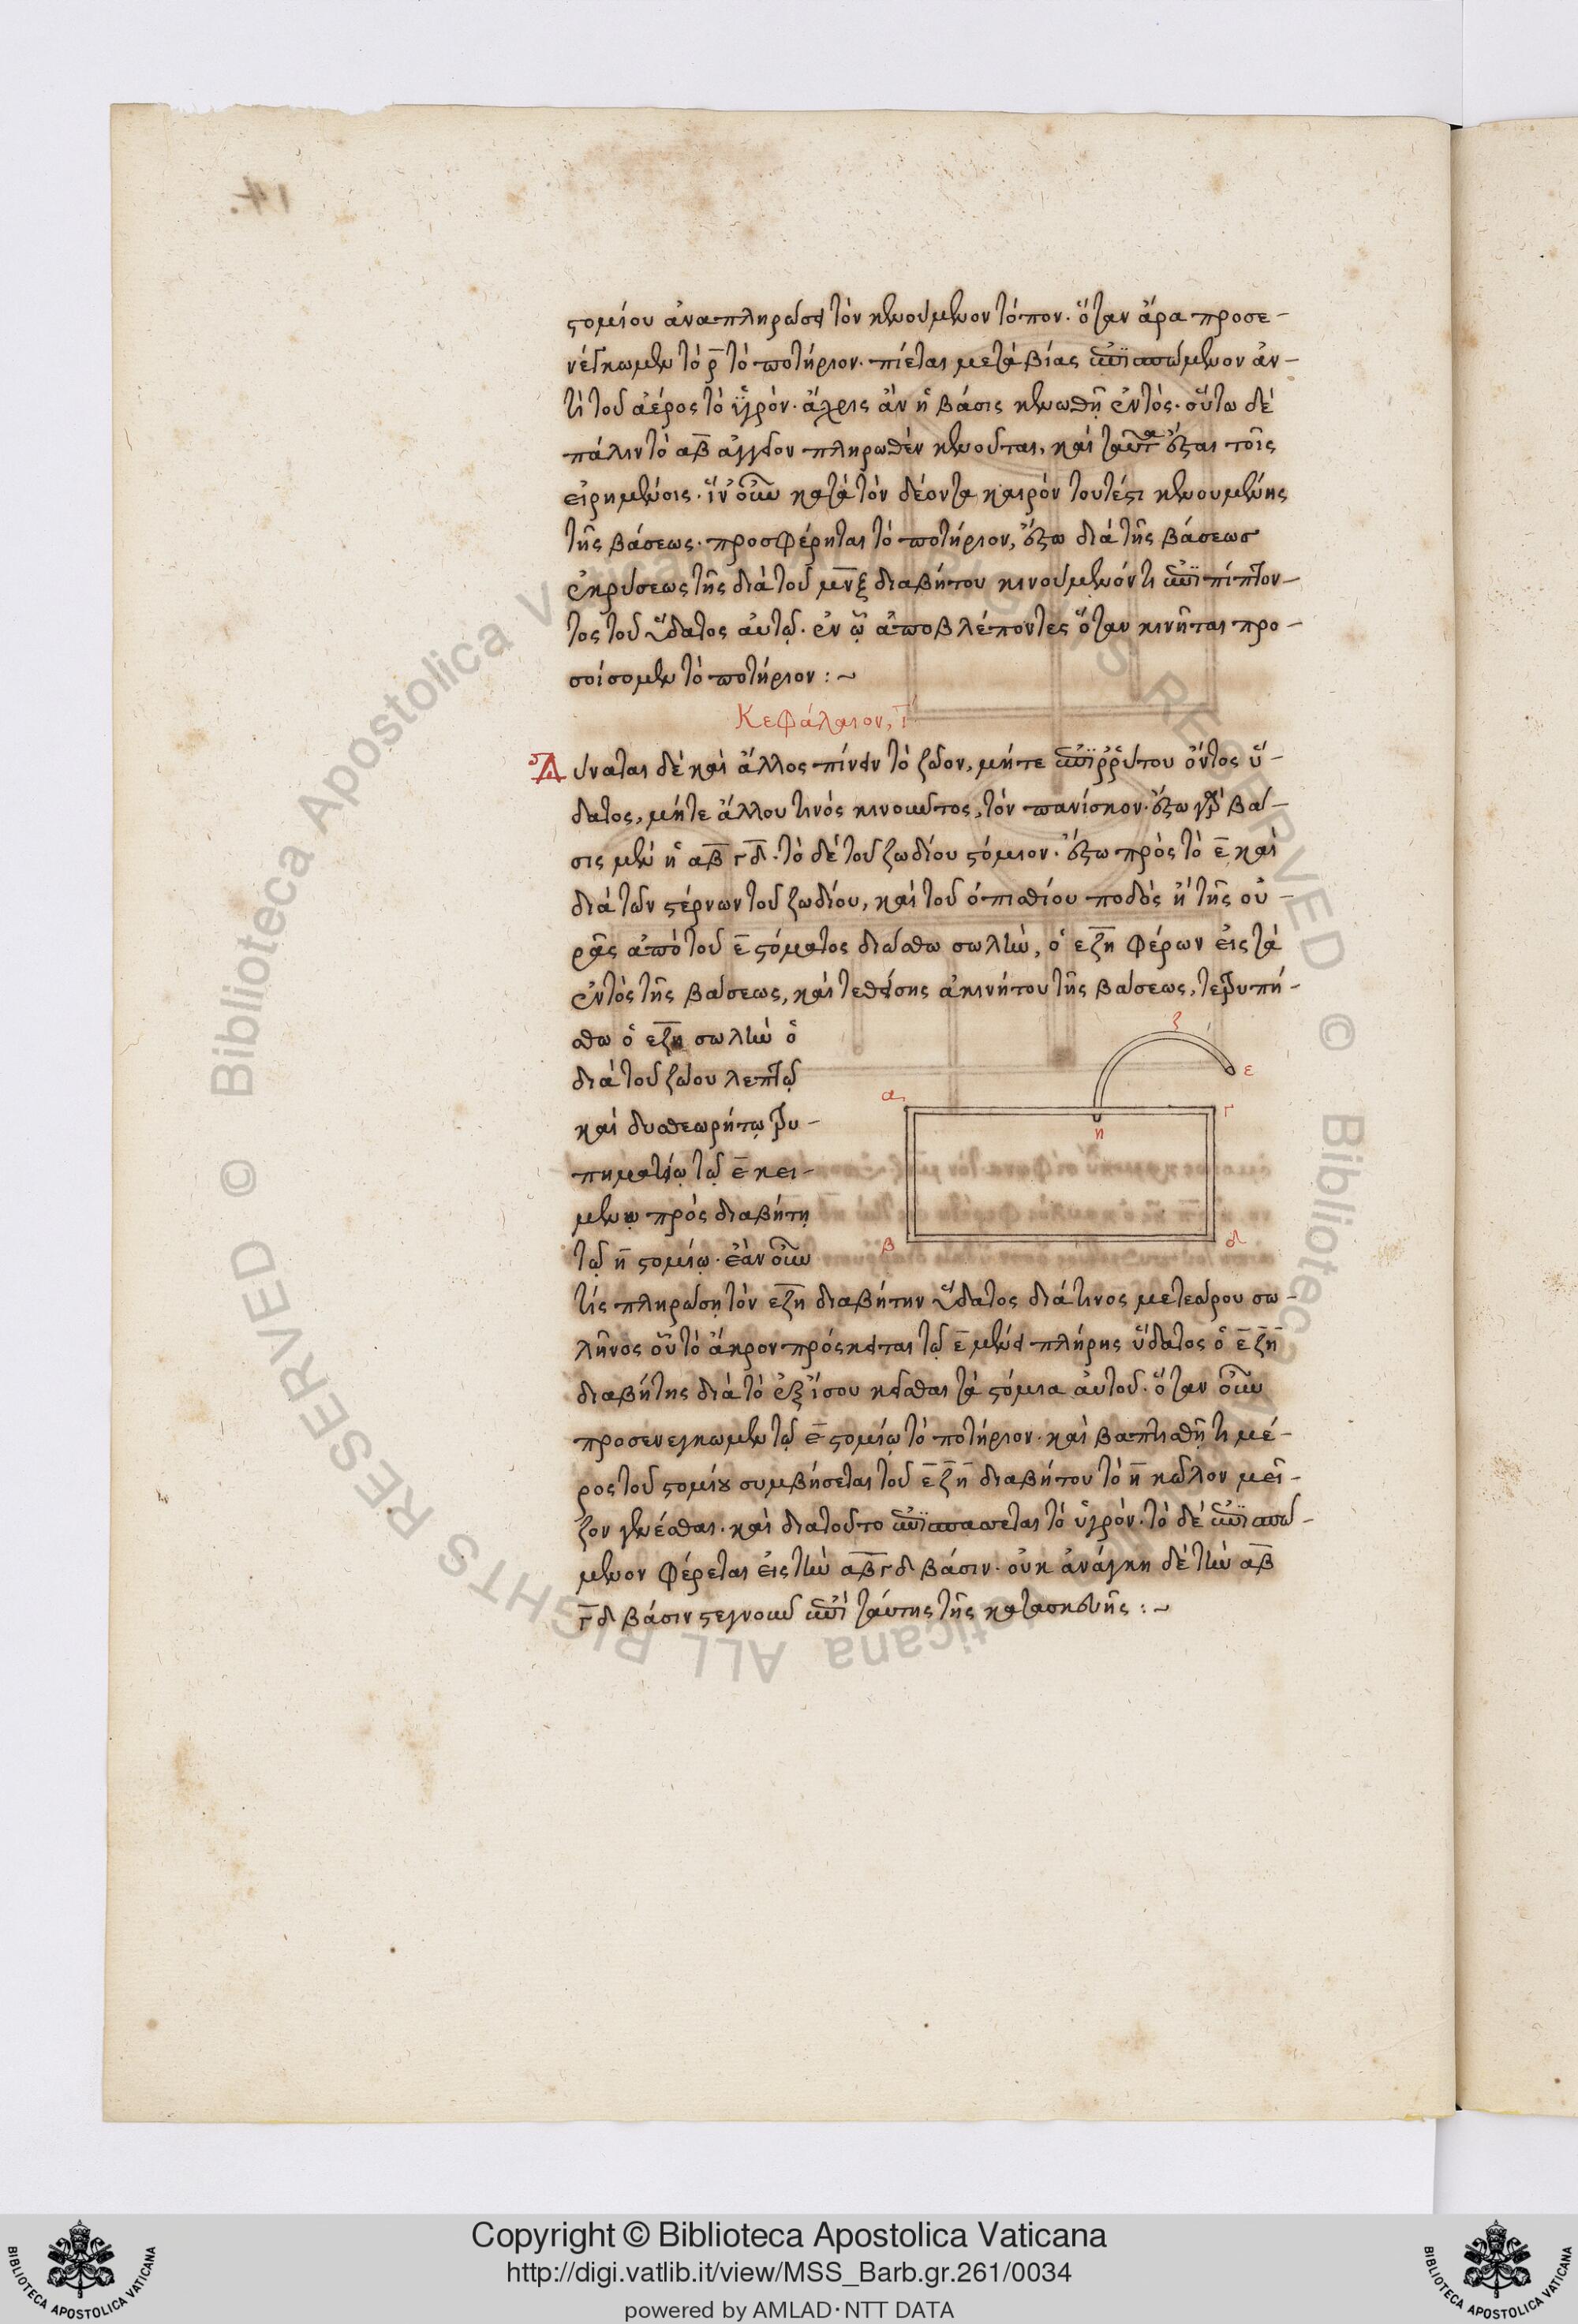 14.
στομίου ἀναπληρώσει τὸν κενούμενον τόπον. ὅταν ἄρα προσε-
νέγκωμεν τὸ ρ̅ τὸ ποτήριον. πίεται μετὰ βίας ἐπισπώμενον ἀν-
τὶ τοῦ ἀέρος τὸ ὑγρὸν. ἄχρις ἂν ἡ βάσις κενωθῇ ἐντὸς. οὕτω δὲ
πάλιν τὸ α̅β̅ ἀγγεῖον πληρωθὲν κενοῦται, καὶ ταῦτα ἔσται τοῖς
εἰρημένοις. ἵν' οὖν κατὰ τὸν δέοντα καιρὸν τουτέστι κενουμένης
τῆς βάσεως. προσφέρηται τὸ ποτήριον, ἔστω διὰ τῆς βάσεως
ἐκρύσεως τῆς διὰ τοῦ μ̅ν̅ξ̅ διαβήτου κινούμενόν τι ἐπιπίπτον-
τος τοῦ ὕδατος αὐτῷ. ἐν ᾧ ἀποβλέποντες ὅταν κινῆται προ-
σοίσομεν τὸ ποτήριον : ~
Κεφάλαιον, ι̅
Δύναται δὲ καὶ ἄλλος πίνειν τὸ ζῶον, μήτε ἐπιρρύτου ὄντος ὕ-
δατος, μήτε ἄλλου τινός κινοῦντος, τὸν πανίσκον. ἔστω γὰρ βά-
σις μὲν ἡ α̅β̅γ̅δ̅. τὸ δὲ τοῦ ζωδίου στόμιον. ἔστω πρὸς τὸ ε̅ καὶ
διὰ τῶν στέρνων τοῦ ζωδίου, καὶ τοῦ ὀπισθίου ποδὸς ἢ τῆς οὐ-
ρᾶς ἀπὸ τοῦ ε̅ στόματος διώσθω σωλὴν, ὁ ε̅ζ̅η̅ φέρων εἰς τὰ
ἐντὸς τῆς βάσεως, καὶ τεθείσης ἀκινήτου τῆς βάσεως, τετρυπή-
σθω ὁ ε̅ζ̅η̅ σωλὴν ὁ
διὰ τοῦ ζώου λεπτῷ
καὶ δυσθεωρήτῳ τρυ-
πηματίῳ τῷ ε̅ κει-
μένῳ πρὸς διαβήτη
τῷ η̅ στομίῳ. ἐὰν οὖν
τίς πληρώσῃ τὸν ε̅ζ̅η̅ διαβήτην ὕδατος διὰ τινος μετεώρου σω-
λῆνος οὗ τὸ ἄκρον πρόσκειται τῷ ε̅ μένει πλήρης ὕδατος ὁ ε̅ζ̅η̅
διαβήτης διὰ τὸ ἐξ ἴσου κεῖσθαι τὰ στόμια αὐτοῦ. ὅταν οὖν
προσενεγκωμεν τῷ ε̅ στομίῳ τὸ ποτήριον. καὶ βαπτισθῇ τι μέ-
ρος τοῦ στομίου συμβήσεται τοῦ ε̅ζ̅η̅ διαβήτου τὸ η̅ κῶλον μεῖ-
ζον γενέσθαι. καὶ διατοῦτο ἐπισπᾶσεται τὸ ὑγρὸν. τὸ δὲ ἐπισπώ-
μενον φέρεται εἰς τὴν α̅β̅γ̅δ βάσιν. οὐκ ἀνάγκη δὲ τὴν α̅β̅
γ̅δ βάσιν στεγνοῦν ἐπὶ ταύτης τῆς κατασκευῆς : ~
ζ
ε
α
γ
η
β
δ
Biblioteca Apostolica Vaticana ALL RIGHTS RESERVED ©
Copyright © Biblioteca Apostolica Vaticana
http://digi.vatlib.it/view/MSS_Barb.gr.261/0034
powered by AMLAD·NTT DATA
BIBLIOTECA APOSTOLICA VATICANA
BIBLIOTECA APOSTOLICA VATICANA